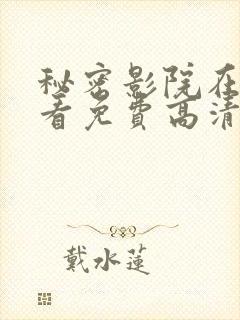 秘密影院在
看免费高清
戴水莲